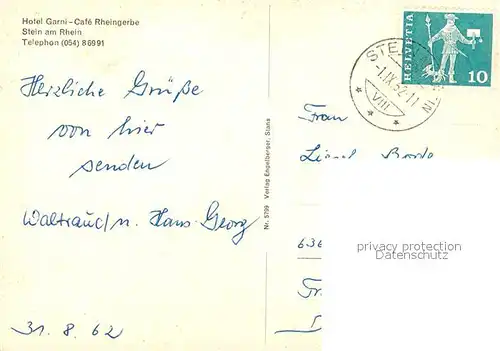 Hotel Garni - Café Rheingerbe
Stein am Rhein
Telephon (054) 86991
Herzliche Grüße
von hier
senden
Waltraud/u. Hans-Georg
31. 8. 62
Nr. 5799 Verlag Engelberger, Stans
HELVETIA
10
STE
IN
-1.IX.62-11
VIII
Frau
636
Fr
privacy protection
Datenschutz